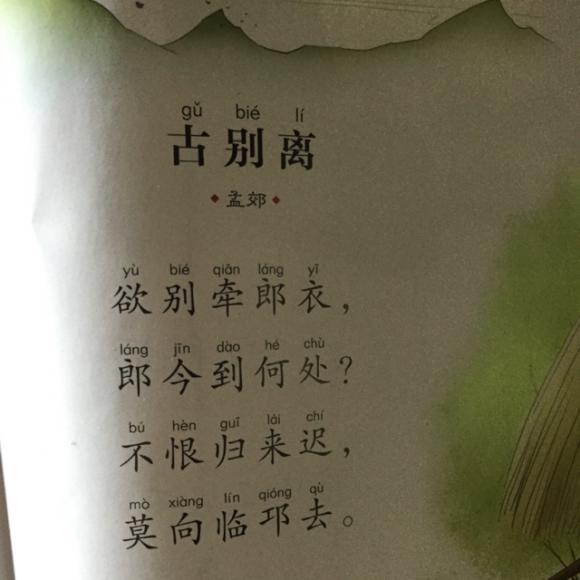 gǔ bié lí
古别离
孟郊
yù bié qiān láng yī
欲别牵郎衣，
láng jīn dào hé chù
郎今到何处？
bú hèn guī lái chí
不恨归来迟，
mò xiàng lín qióng qù
莫向临邛去。